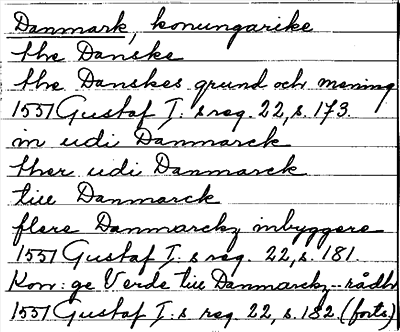 Danmark, konungarike
the Danske
the Danskes grund och mening
1551 Gustaf I:s reg. 22, s. 173.
in udi Danmarck
ther udi Danmarck
till Danmarck
flere Danmarckz inbyggere
1551 Gustaf I:s reg. 22, s. 181.
Kon:ge Verde till Danmarckz rådh
1551 Gustaf I:s reg. 22, s. 182 (forts.)